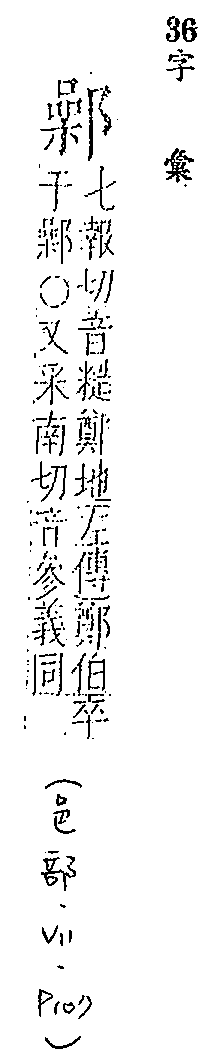 36字 彙
鄵
七報切音糙鄭地左傳鄭伯卒
于鄵○又采南切音參義同
(邑部·VII·